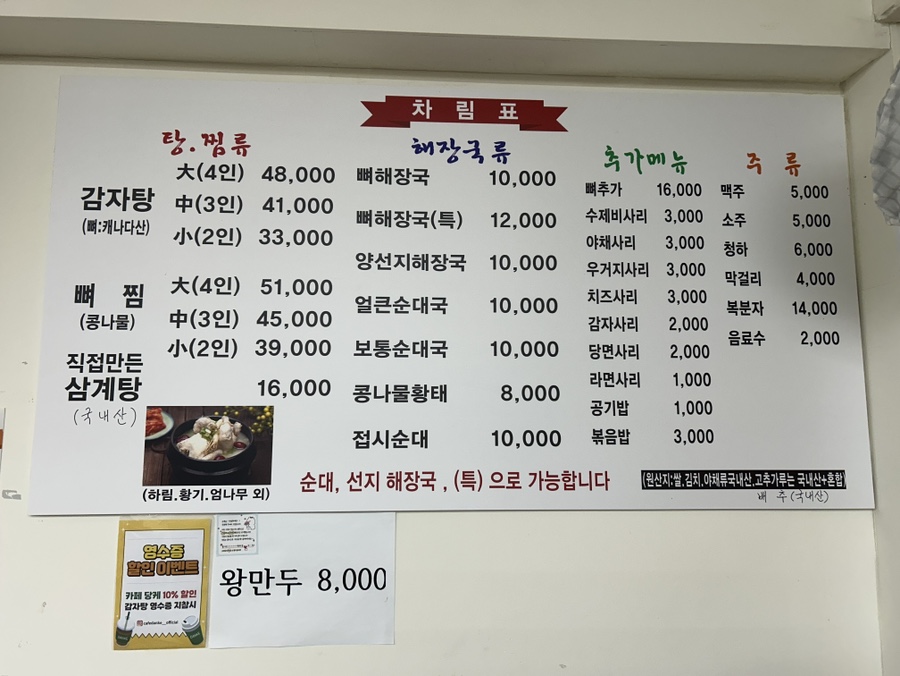 차 림 표
탕.찜류
감자탕
(뼈:캐나다산)
大(4인) 48,000
中(3인) 41,000
小(2인) 33,000
뼈 찜
(콩나물)
大(4인) 51,000
中(3인) 45,000
小(2인) 39,000
직접만든
삼계탕 16,000
(국내산)
(하림.황기.엄나무 외)
해장국류
뼈해장국 10,000
뼈해장국(특) 12,000
양선지해장국 10,000
얼큰순대국 10,000
보통순대국 10,000
콩나물황태 8,000
접시순대 10,000
순대, 선지 해장국 , (특) 으로 가능합니다
추가메뉴
뼈추가 16,000
수제비사리 3,000
야채사리 3,000
우거지사리 3,000
치즈사리 3,000
감자사리 2,000
당면사리 2,000
라면사리 1,000
공기밥 1,000
볶음밥 3,000
주 류
맥주 5,000
소주 5,000
청하 6,000
막걸리 4,000
복분자 14,000
음료수 2,000
(원산지:쌀.김치.야채류국내산.고추가루는 국내산+혼합)
배 추 (국내산)
영수증
할인 이벤트
카페 당케 10% 할인
감자탕 영수증 지참시
왕만두 8,000